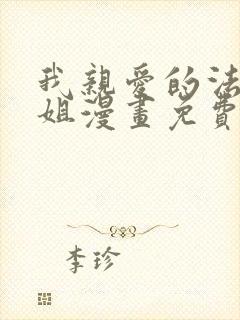 我親愛的法
姐漫畫免費
李珍